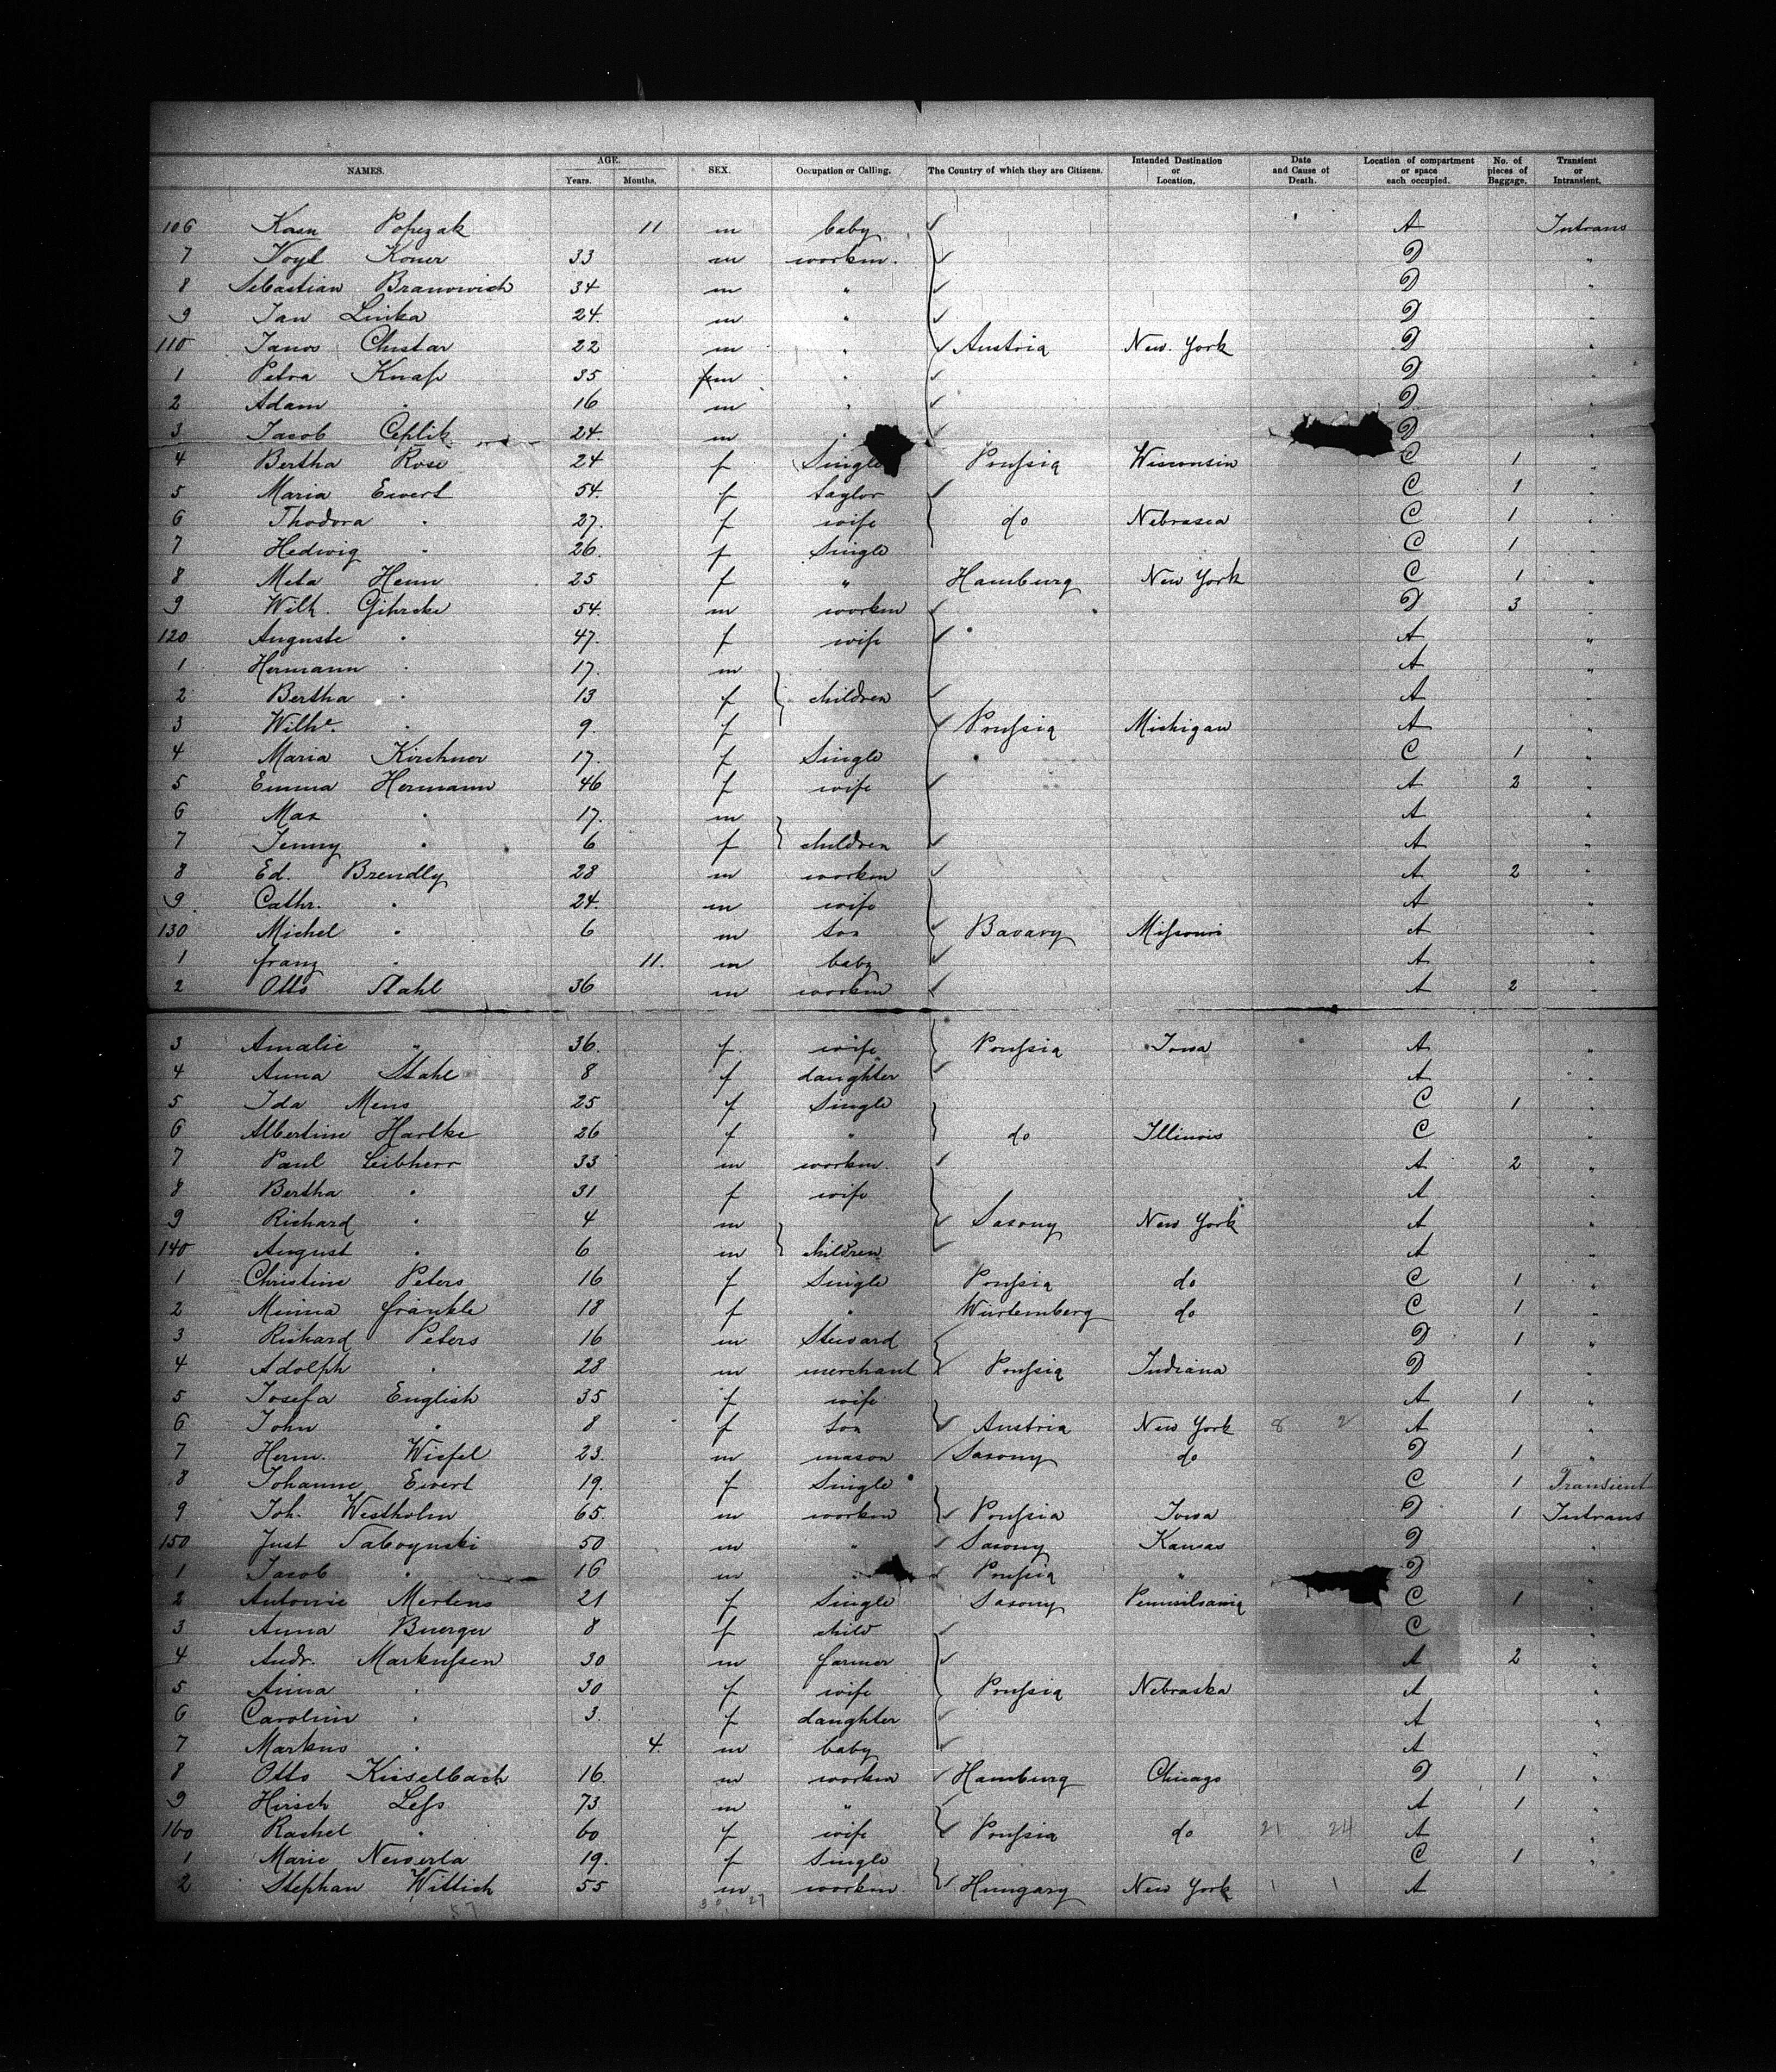 NAMES. AGE. Years. Months. SEX. Occupation or Calling. The Country of which they are Citizens. Intended Destination or Location. Date and Cause of Death. Location of compartment or space each occupied. No. of pieces of Baggage. Transient or Intransient.
106 Popezak 11 m baby A Intrans
7 Koner 33 m workm. D "
8 Sebastian Branowich 34 m " D "
9 Jan Linka 24. m " D "
110 Janos Chustar 22 m " Austria New. York D "
1 Petra Knap 35 m " D "
2 Adam " 16 m " D "
3 Jacob Ceplik 24. m " D "
4 Bertha Rose 24 f Single Prussia Wisconsin C 1 "
5 Maria Ewert 54. f taylor C 1 "
6 Thodora " 27. f wife do Nebrasca C 1 "
7 Hedwig " 26. f Single C 1 "
8 Meta Henn 25 f " Hamburg New York C 1 "
9 Wilh. Gihrcke 54. m workm D 3 "
120 Auguste " 47. f wife A "
1 Hermann " 17. m A "
2 Bertha " 13 f children A "
3 Wilhe. " 9. f Prussia Michigan A "
4 Maria Kirchner 17. f Single C 1 "
5 Emma Hermann 46 f wife A 2 "
6 Max " 17. m A "
7 Jenny " 6 f children A "
8 Ed. Brendly 28 m workm A 2 "
9 Cathr. " 24. m wife A "
130 Michel " 6 m son Bavary Missouri A "
1 franz " 11. m baby A "
2 Otto Stahl 36 m workm A 2 "
3 Amalie " 36. f. wife Prussia Iowa A "
4 Anna Stahl 8 f daughter A "
5 Ida Mens 25 f Single C 1 "
6 Albertine Hartke 26 f " do Illinois C "
7 Paul Leibherr 33 m workm. A 2 "
8 Bertha " 31 f wife A "
9 Richard " 4 m Saxony New York A "
140 August " 6 m children A "
1 Christine Peters 16 f Single Prussia do C 1 "
2 Minna fränkle 18 f " Würtemberg do C 1 "
3 Richard Peters 16 m Steward D 1 "
4 Adolph " 28 m merchant Prussia Indiana D "
5 Josefa English 35 f wife A 1 "
6 John " 8 f son Austria New York 8 2 A "
7 Herm. Wiefel 23. m mason Saxony do D 1 "
8 Johanne Ewert 19. f Single C 1 Transient
9 Joh. Westholm 65. m workm Prussia Iowa D 1 Intrans
150 Just Taboynski 50 m " Saxony Kansas D "
1 Jacob " 16 m " Prussia " D "
2 Antonie Mertens 21 f Single Saxony Pennsilsaniq C 1 "
3 Anna Buerger 8 f child C "
4 Andr. Markussen 30 m farmer A 2 "
5 Anna " 30 f wife Prussia Nebraska A "
6 Carolin " 3. f daughter A "
7 Markus " 4. m baby A "
8 Otto Kisselbach 16. m workm Hamburg Chicago D 1 "
9 Hirsch Less 73 m " A 1 "
160 Rachel " 60 f wife Prussia do 21 24 A "
1 Marie Newerla 19. f Single C 1 "
2 Stephan Wittich 55 m workm. Hungary New York 1 1 A
57 30 27